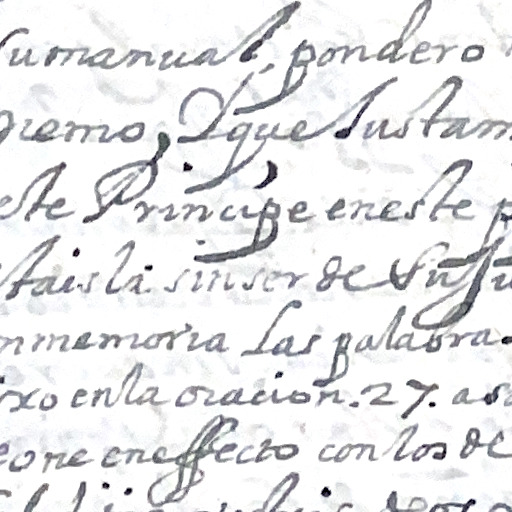 su manual, pondero
premo, Y que Justam
este Principe en este p
stais la sin ser de su Ju
nmemoria Las palabra
ixo en la oracion. 27. a s
eone en effecto con los de